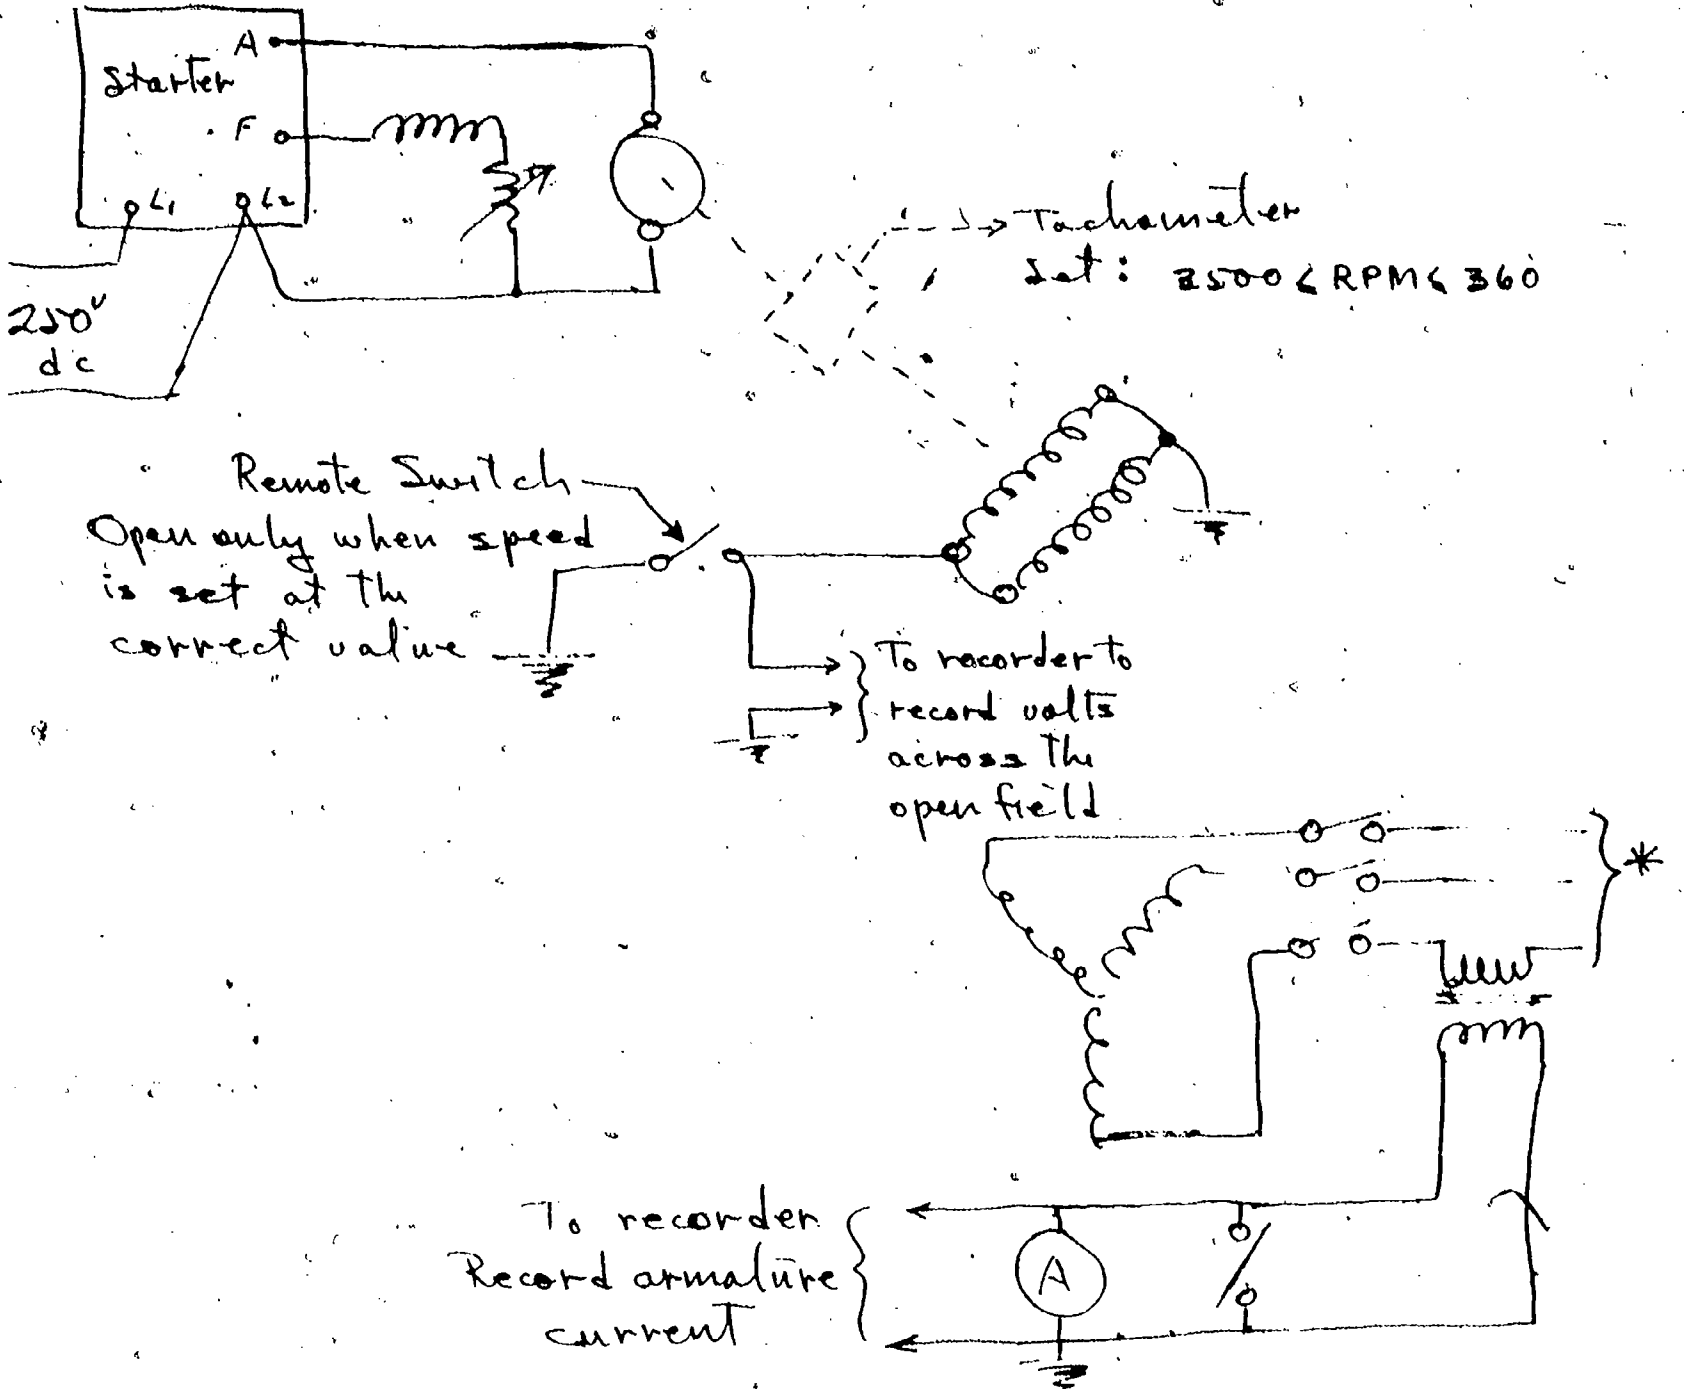 A
Starter
F
L1
L2
250v
dc
Tachometer
Set: 3500 < RPM < 360
Remote Switch
Open only when speed
is set at the
correct value
To recorder to
record volts
across the
open field
*
To recorder
Record armature
current
A